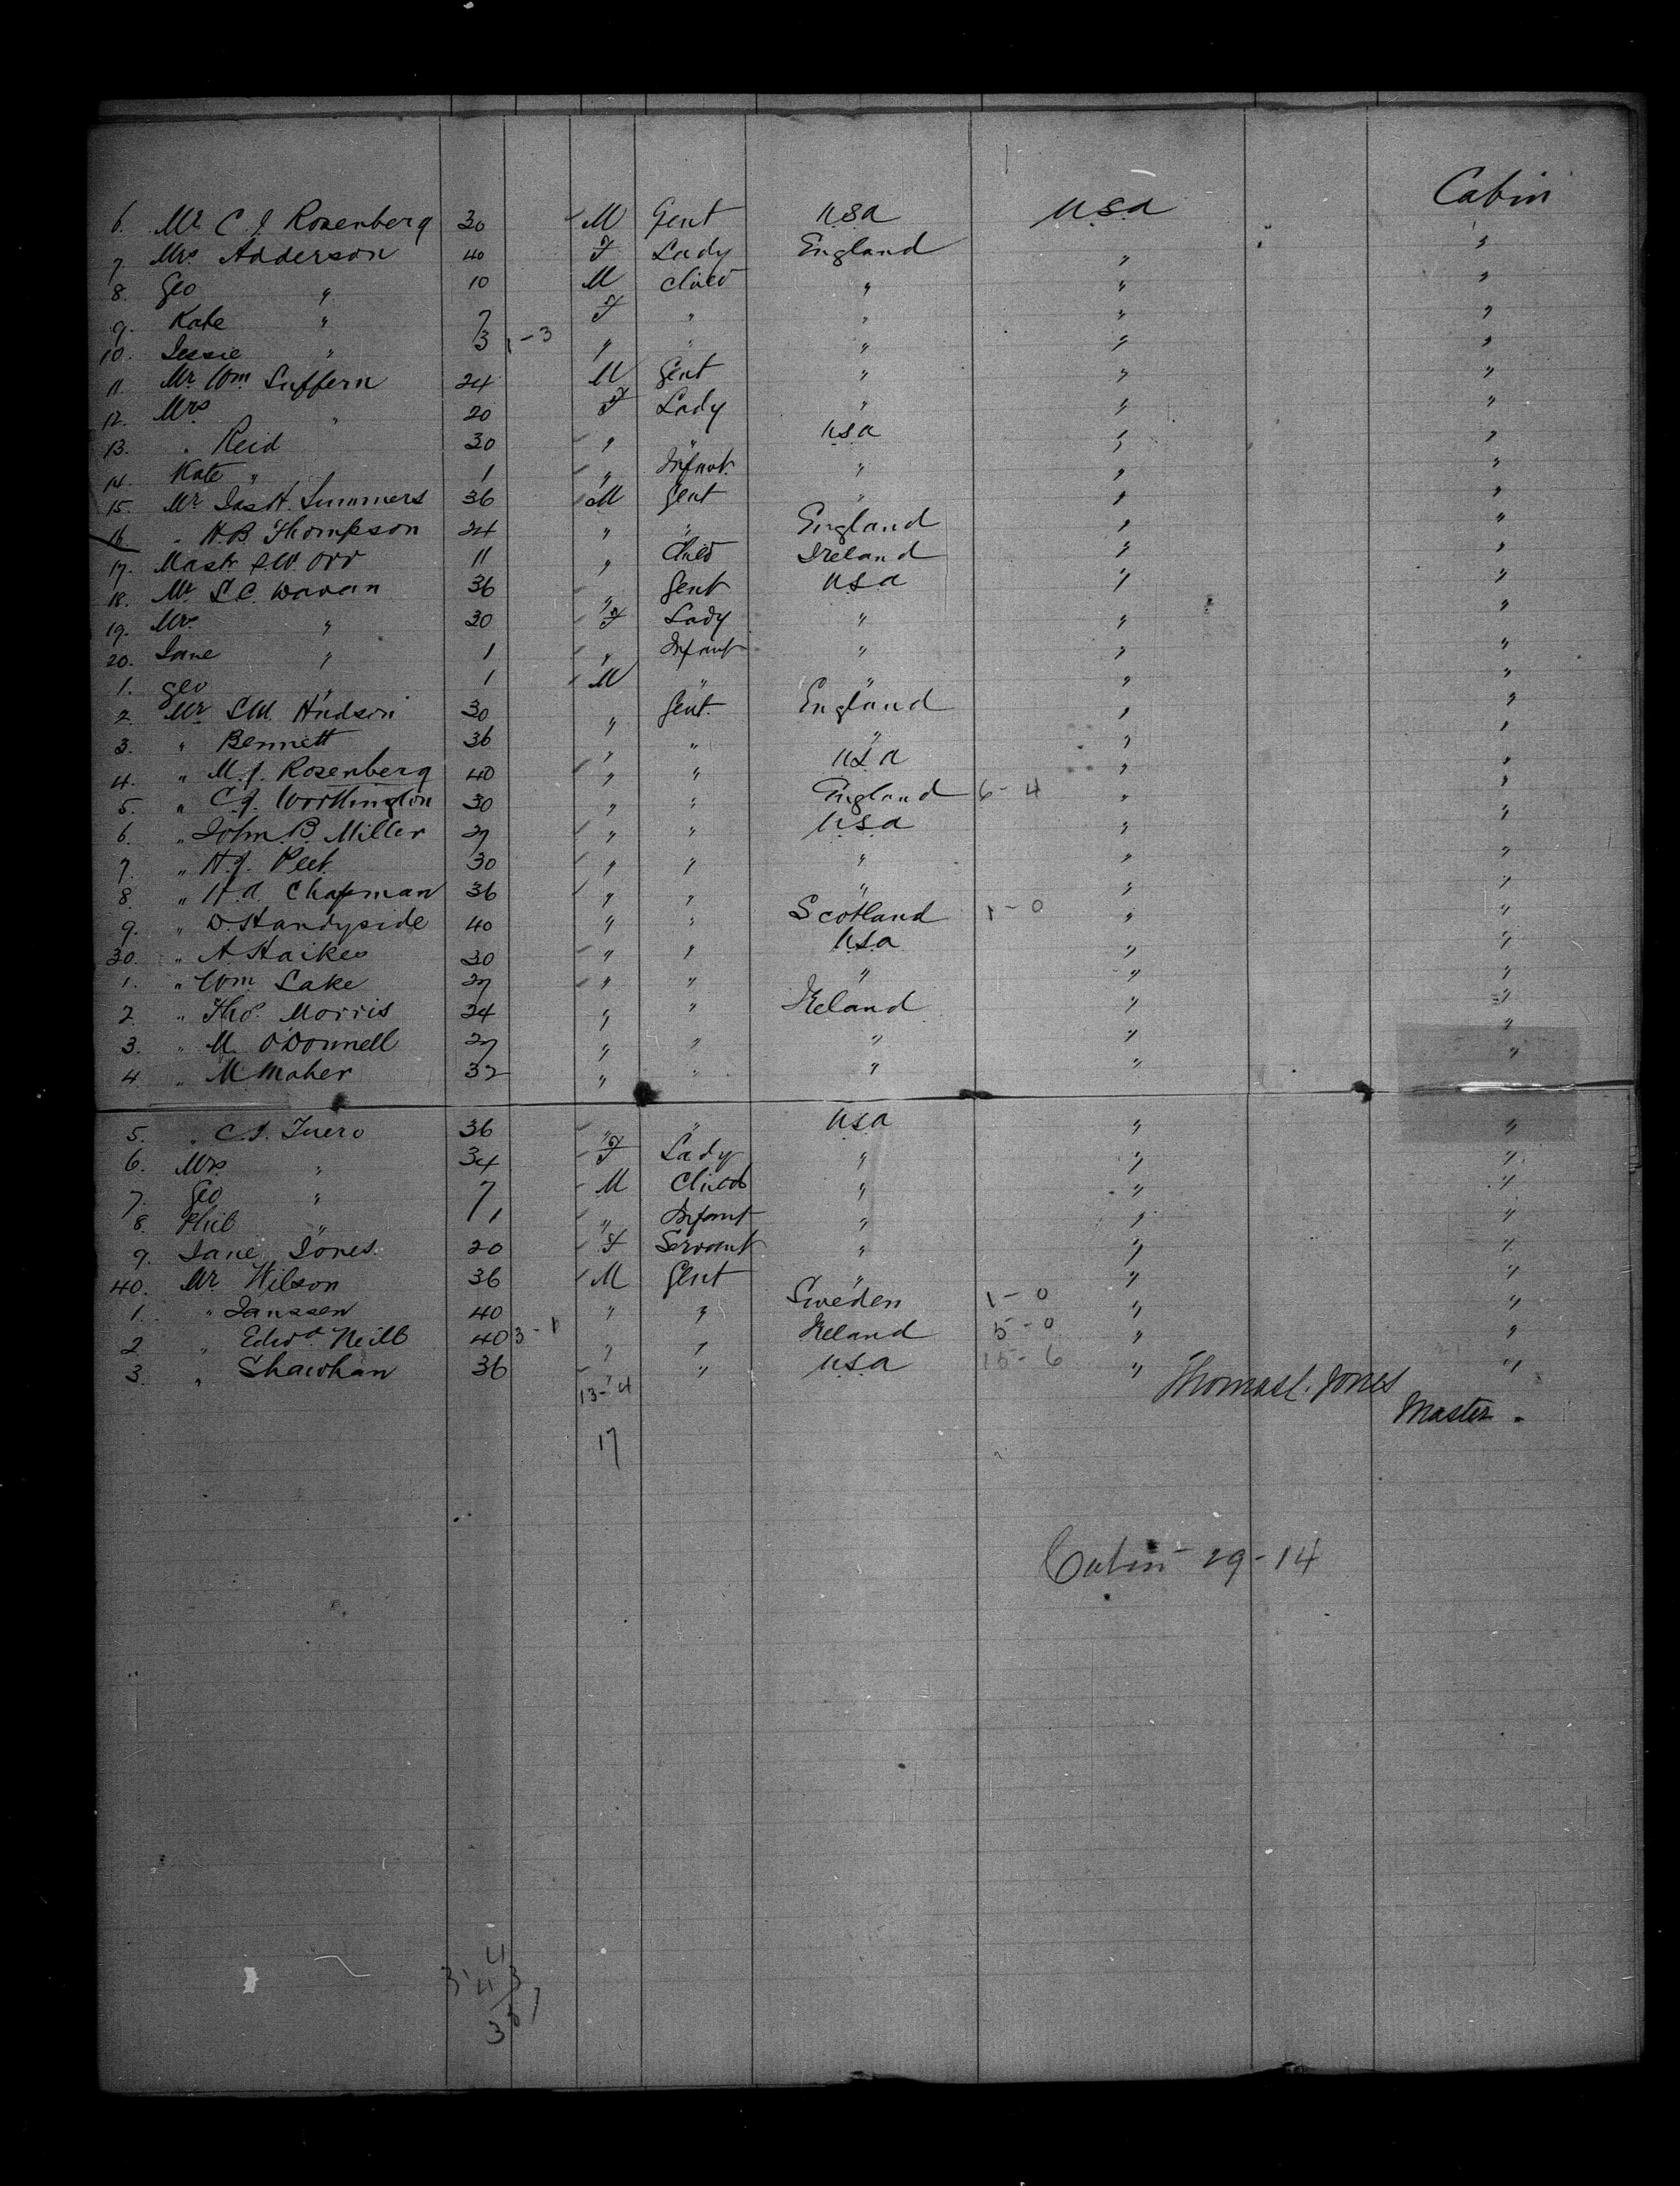 Cabin
6. Mr. C. J. Rosenberg 30 M Gent U.S.A U.S.A
7. Mrs Adderson 40 F Lady England " "
8. Geo " 10 M Child " " "
9. Kate " 7 F " " " "
10. Jessie " 3 1-3 " " " " "
11. Mr. Wm. Suffern 24 M Gent " " "
12. Mrs " 20 F Lady " " "
13. " Reid 30 " " U.S.A " "
14. Kate " 1 " Infant " " "
15. Mr Jas H. Summers 36 M Gent " " "
16. " H.B. Thompson 24 " " England " "
17. Mastr. Orr 11 " Child Ireland " "
18. Mr S.C. 36 " Gent U.S.A " "
19. Mrs " 30 F Lady " " "
20. Jane " 1 " Infant " " "
1. Geo " 1 M " " " "
2. Mr S.M. Hudson 30 " Gent. England " "
3. " Bennett 36 " " " " "
4. " M.J. Rosenberg 40 " " U.S.A " "
5. " C.J. Worthington 30 " " England 6-4 " "
6. " John B. Miller 27 " " U.S.A " "
7. " H.J. Peet 30 " " " " "
8. " H.A. Chapman 36 " " " " "
9. " D. Handyside 40 " " Scotland 1-0 " "
30. " A. Haikes 30 " " U.S.A " "
1. " Wm. Lake 27 " " " " "
2. " Tho.s Morris 24 " " Ireland " "
3. " M. O'Donnell 27 " " " " "
4. " M Maher 32 " " " " "
5. " C.J. Tuero 36 " " U.S.A " "
6. Mrs " 34 F Lady " " "
7. Geo " 7 M Child " " "
8. Phil " 1 " Infant " " "
9. Jane Jones 20 F Servant " " "
40. Mr. Wilson 36 M Gent " " "
1. " Janssen 40 " " Sweden 1-0 " "
2. " Edwd. Neill 40 3-1 " " Ireland 5-0 " "
3. " Shawhan 36 " " U.S.A 15-6 " "
13-4
Thomas C. Jones
Master.
17
Cabin 29-14